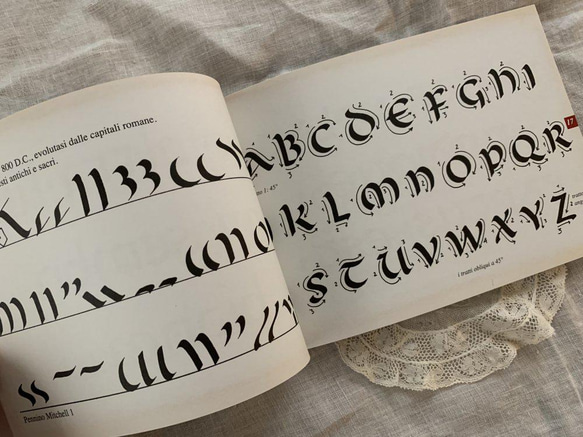 800 D.C., evolutasi dalle capitali romane.
antichi e sacri.
Pennino Mitchell 1
A B C D E F G H I
17
1: 45°
K L M N O P Q R
S T U V W X Y Z
i tratti obliqui a 45°